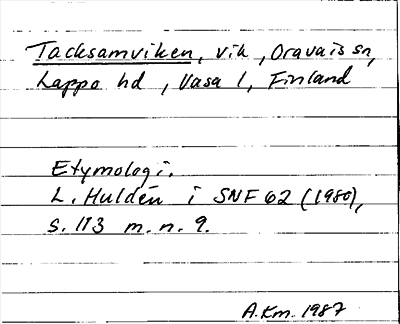 Tacksamviken, vik, Oravais sn,
Lappo hd, Vasa l, Finland
Etymologi.
L. Huldén i SNF 62 (1980),
s. 113 m. n. 9.
A.Km. 1987